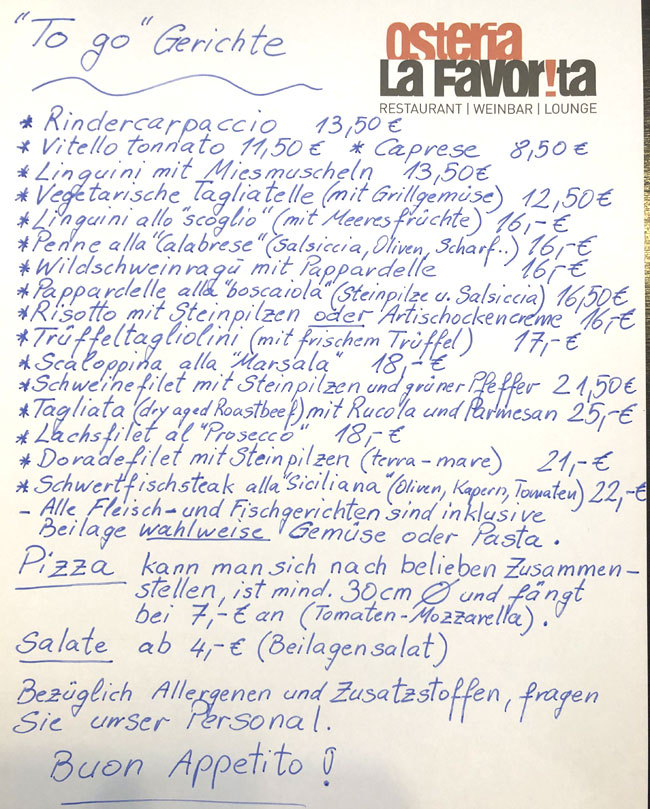 "To go" Gerichte
Osteria
La Favor!ta
RESTAURANT | WEINBAR | LOUNGE
* Rindercarpaccio 13,50 €
* Vitello tonnato 11,50 € * Caprese 8,50 €
* Linguini mit Miesmuscheln 13,50 €
* Vegetarische Tagliatelle (mit Grillgemüse) 12,50 €
* Linguini allo "scoglio" (mit Meeresfrüchte) 16,- €
* Penne alla "Calabrese" (Salsiccia, Oliven, Scharf..) 16,- €
* Wildschweinragù mit Pappardelle 16,- €
* Pappardelle alla "boscaiola" (Steinpilze u. Salsiccia) 16,50 €
* Risotto mit Steinpilzen oder Artischockencreme 16,- €
* Trüffeltagliolini (mit frischem Trüffel) 17,- €
* Scaloppina alla "Marsala" 18,- €
* Schweinefilet mit Steinpilzen und grüner Pfeffer 21,50 €
* Tagliata (dry aged Roastbeef) mit Rucola und Parmesan 25,- €
* Lachsfilet al "Prosecco" 18,- €
* Doradefilet mit Steinpilzen (terra-mare) 21,- €
* Schwertfischsteak alla "Siciliana" (Oliven, Kapern, Tomaten) 22,- €
- Alle Fleisch- und Fischgerichten sind inklusive
Beilage wahlweise Gemüse oder Pasta.
Pizza kann man sich nach belieben Zusammen-
stellen, ist mind. 30cm Ø und fängt
bei 7,- € an (Tomaten-Mozzarella).
Salate ab 4,- € (Beilagensalat)
Bezüglich Allergenen und Zusatzstoffen, fragen
Sie unser Personal.
Buon Appetito!